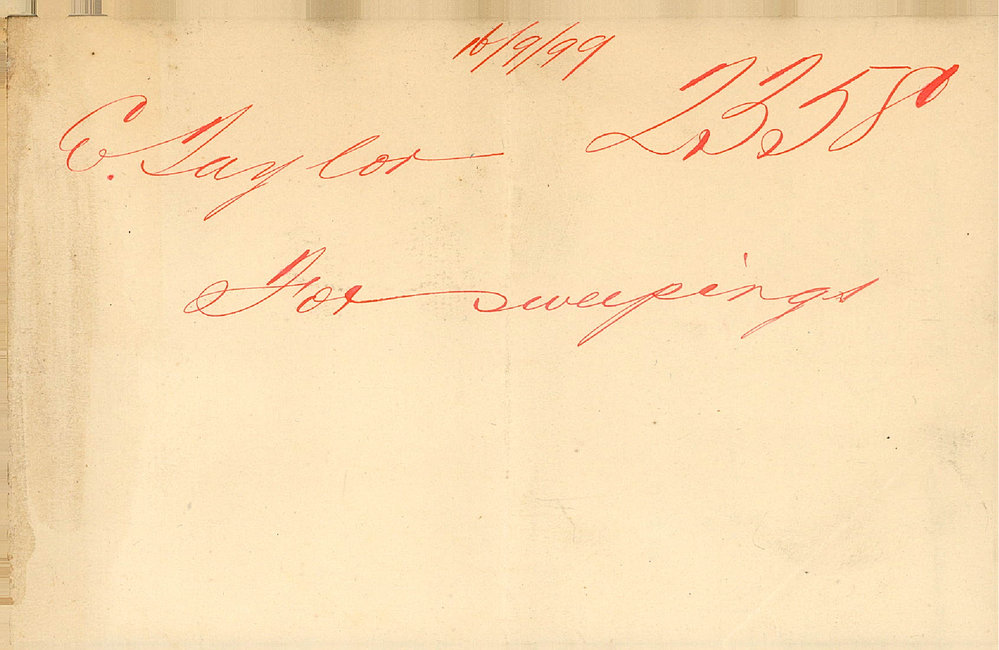 16/9/99
E. Taylor 2358
For sweepings